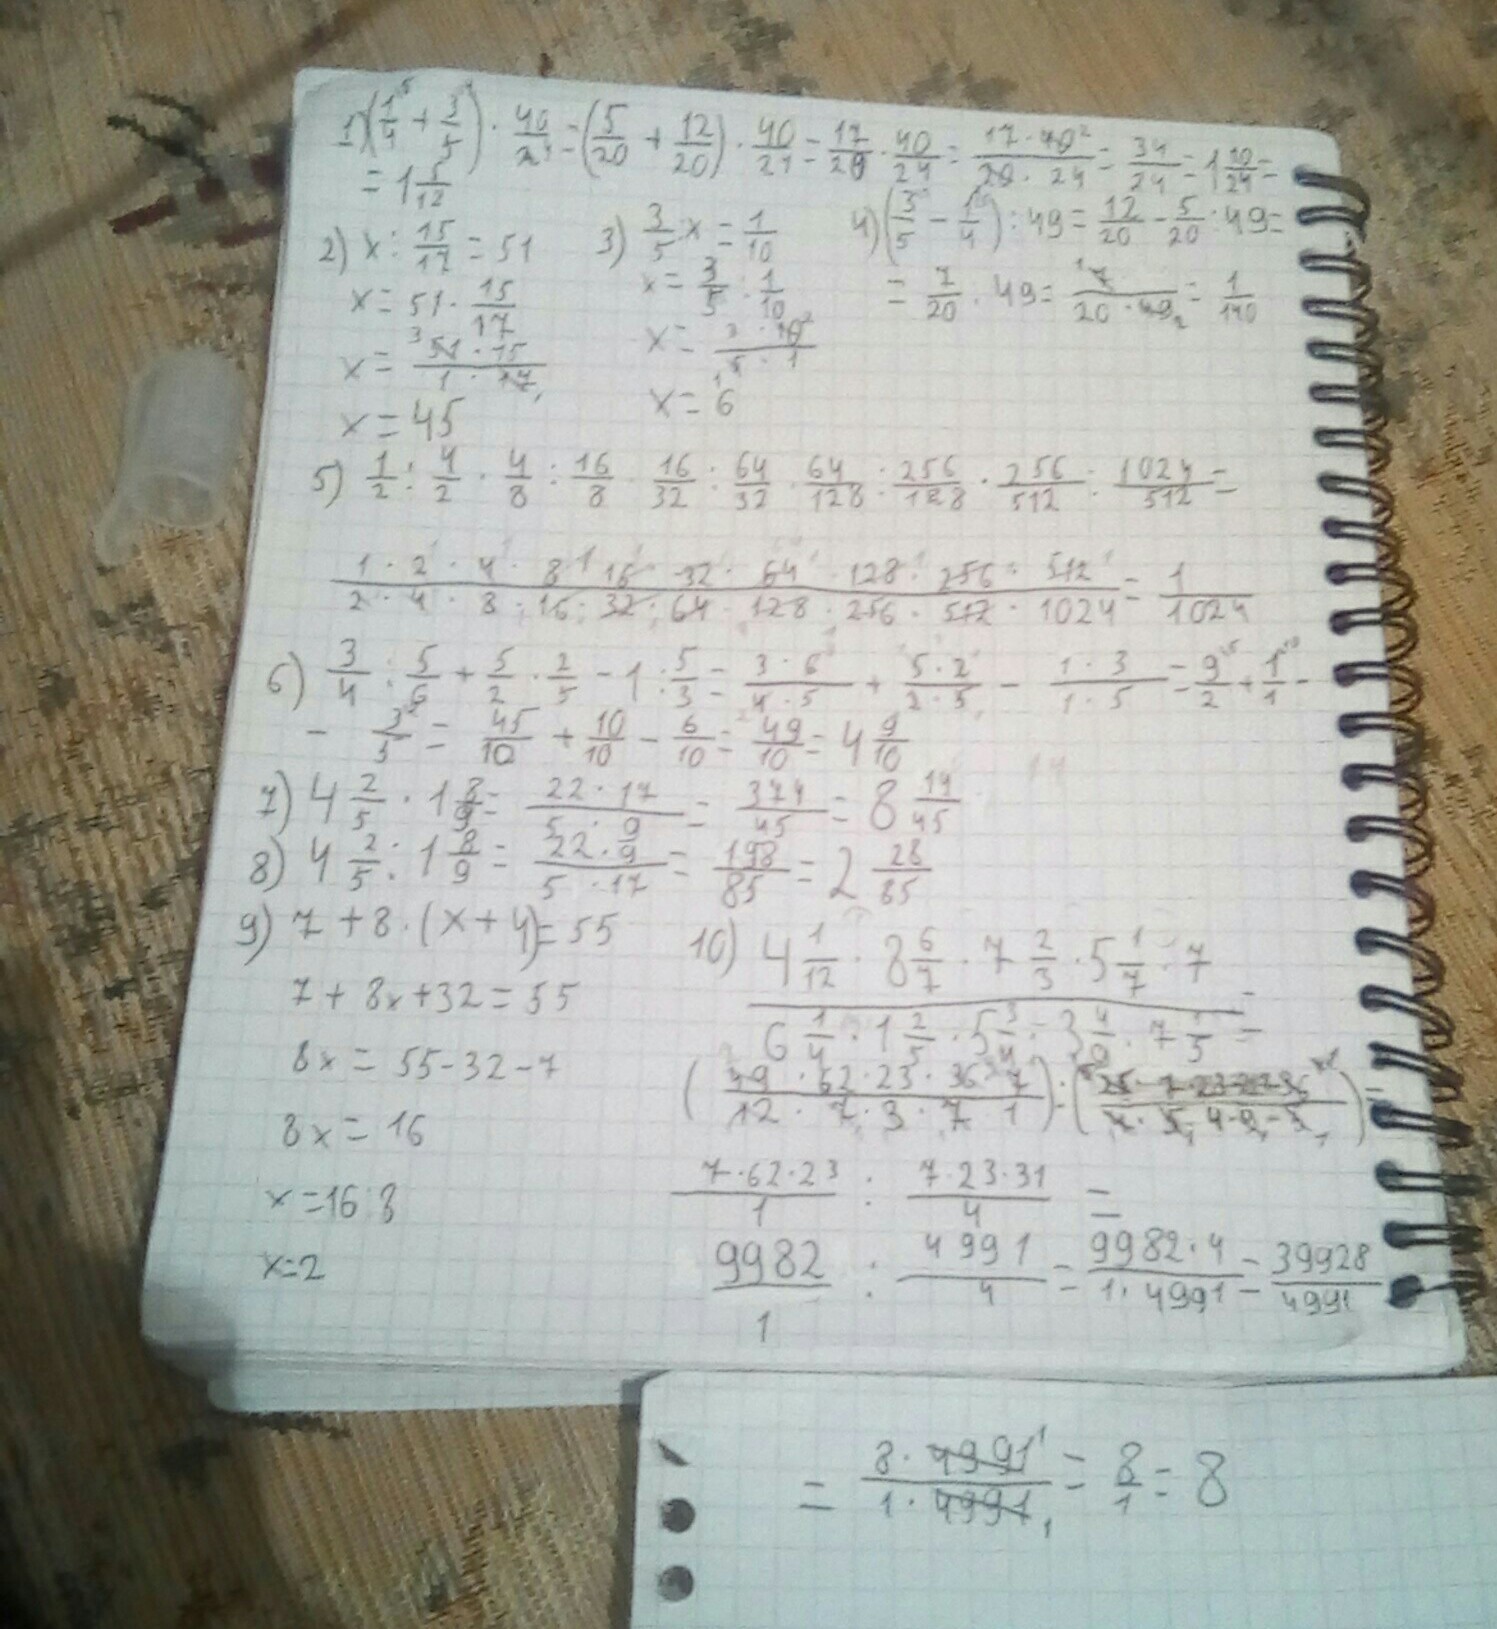 1) (1/4 + 3/5) · 40/24 = (5/20 + 12/20) · 40/24 = 17/20 · 40/24 = 17·40/20·24 = 34/24 = 1 10/24 =
= 1 5/12
2) x : 15/17 = 51
x = 51 · 15/17
x = 51·15/1·17
x = 45
3) 3/5 : x = 1/10
x = 3/5 : 1/10
x = 3·10/5·1
x = 6
4) (3/5 - 1/4) : 49 = 12/20 - 5/20 : 49 =
= 7/20 · 49 = 7/20·49 = 1/140
5) 1/2 : 4/2 · 4/8 : 16/8 · 16/32 : 64/32 · 64/128 : 256/128 · 256/512 : 1024/512 =
1 · 2 · 4 · 8 · 16 · 32 · 64 · 128 · 256 · 512 / 2 · 4 · 8 · 16 · 32 · 64 · 128 · 256 · 512 · 1024 = 1/1024
6) 3/4 : 5/6 + 5/2 · 2/5 - 1 : 5/3 = 3·6/4·5 + 5·2/2·5 - 1·3/1·5 = 9/2 + 1/1 -
- 3/5 = 45/10 + 10/10 - 6/10 = 49/10 = 4 9/10
7) 4 2/5 · 1 8/9 = 22·17/5·9 = 374/45 = 8 14/45
8) 4 2/5 : 1 8/9 = 22·9/5·17 = 198/85 = 2 28/85
9) 7 + 8 · (x + 4) = 55
7 + 8x + 32 = 55
8x = 55 - 32 - 7
8x = 16
x = 16 : 8
x = 2
10) 4 1/12 · 8 6/7 · 7 2/3 · 5 1/7 · 7 / 6 1/4 · 1 2/5 · 5 3/4 · 3 4/9 · 7 1/5 =
(49·62·23·36·7/12·7·3·7·1) :
7·62·23/1 : 7·23·31/4 =
9982/1 : 4991/4 = 9982·4/1·4991 = 39928/4991
= 8·4991/1·4991 = 8/1 = 8